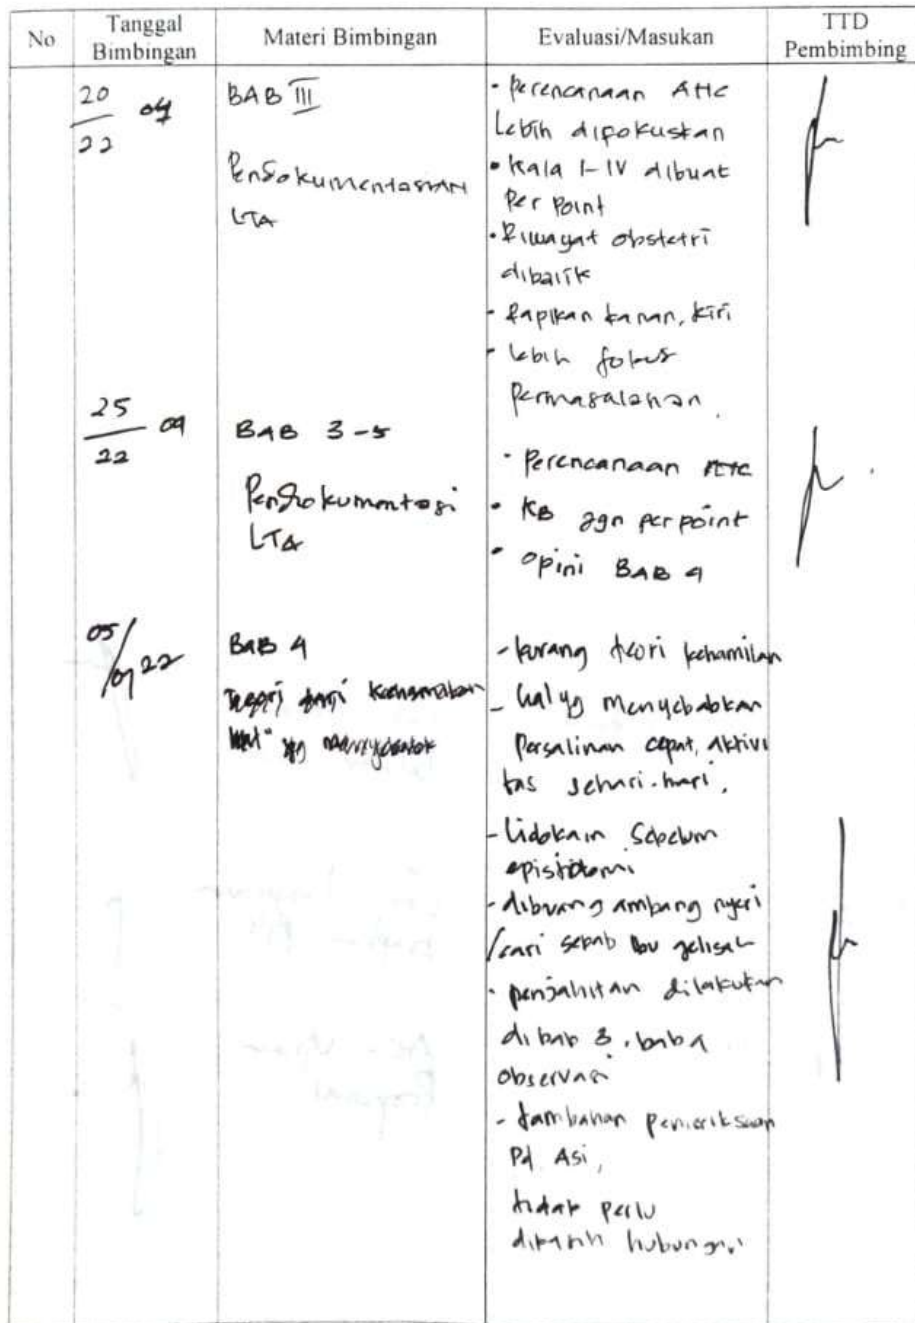 No
Tanggal Bimbingan
Materi Bimbingan
Evaluasi/Masukan
TTD Pembimbing
20/22 04
BAB III
Pendokumentasian
LTA
• Perencanaan
Lebih difokuskan
• Kala I-IV dibuat
Per Point
• Riwayat obstetri
dibalik
- Rapikan kanan, kiri
- lebih fokus
Permasalahan.
25/22
BAB 3-5
Pendokumentasi
LTA
• Perencanaan
• KB per point
• Opini BAB 4
05/ 22
BAB 4
- kurang teori kehamilan
- hal yg menyebabkan
Persalinan cepat, aktivi
tas sehari-hari.
- Lidokain sebelum
- dibuang ambang nyeri
/cari sebab ibu gelisah
- penjahitan dilakukan
di bab 3,
observasi
- tambahan pemeriksaan
Pd Asi,
tidak perlu